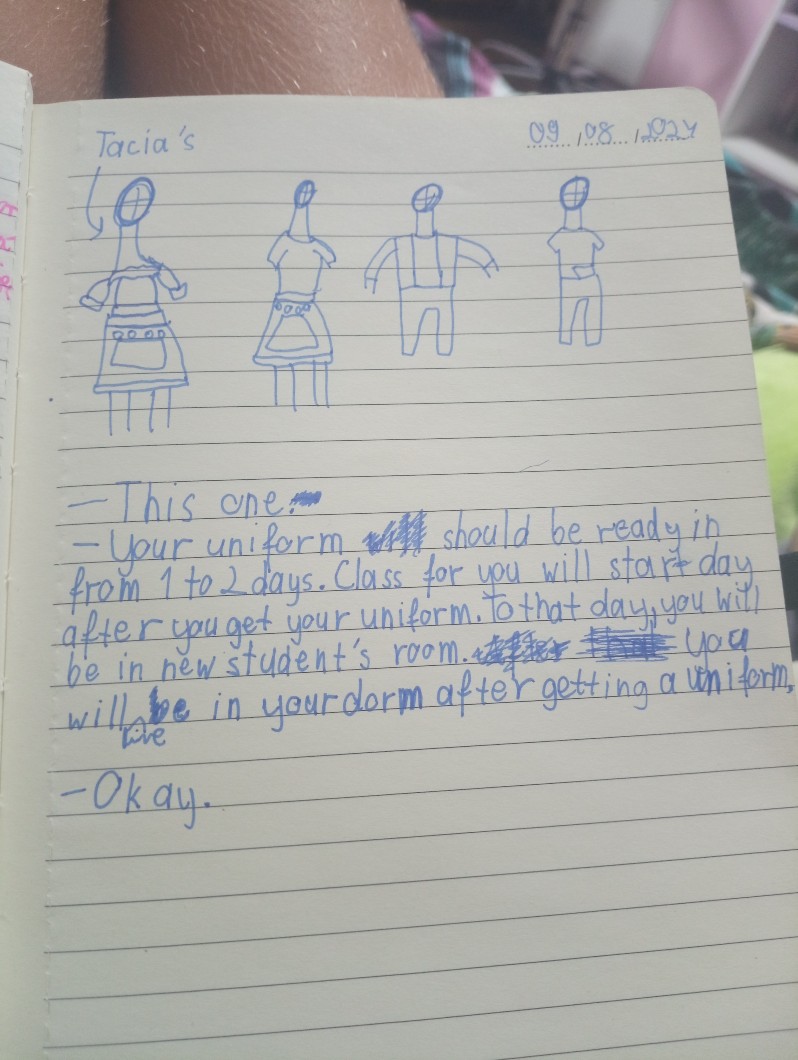 Tacia's
09/08/2024
—This one.
—Your uniform should be ready in
from 1 to 2 days. Class for you will start day
after you get your uniform. To that day, you will
be in new student's room. you
will live in your dorm after getting a uniform.
—Okay.